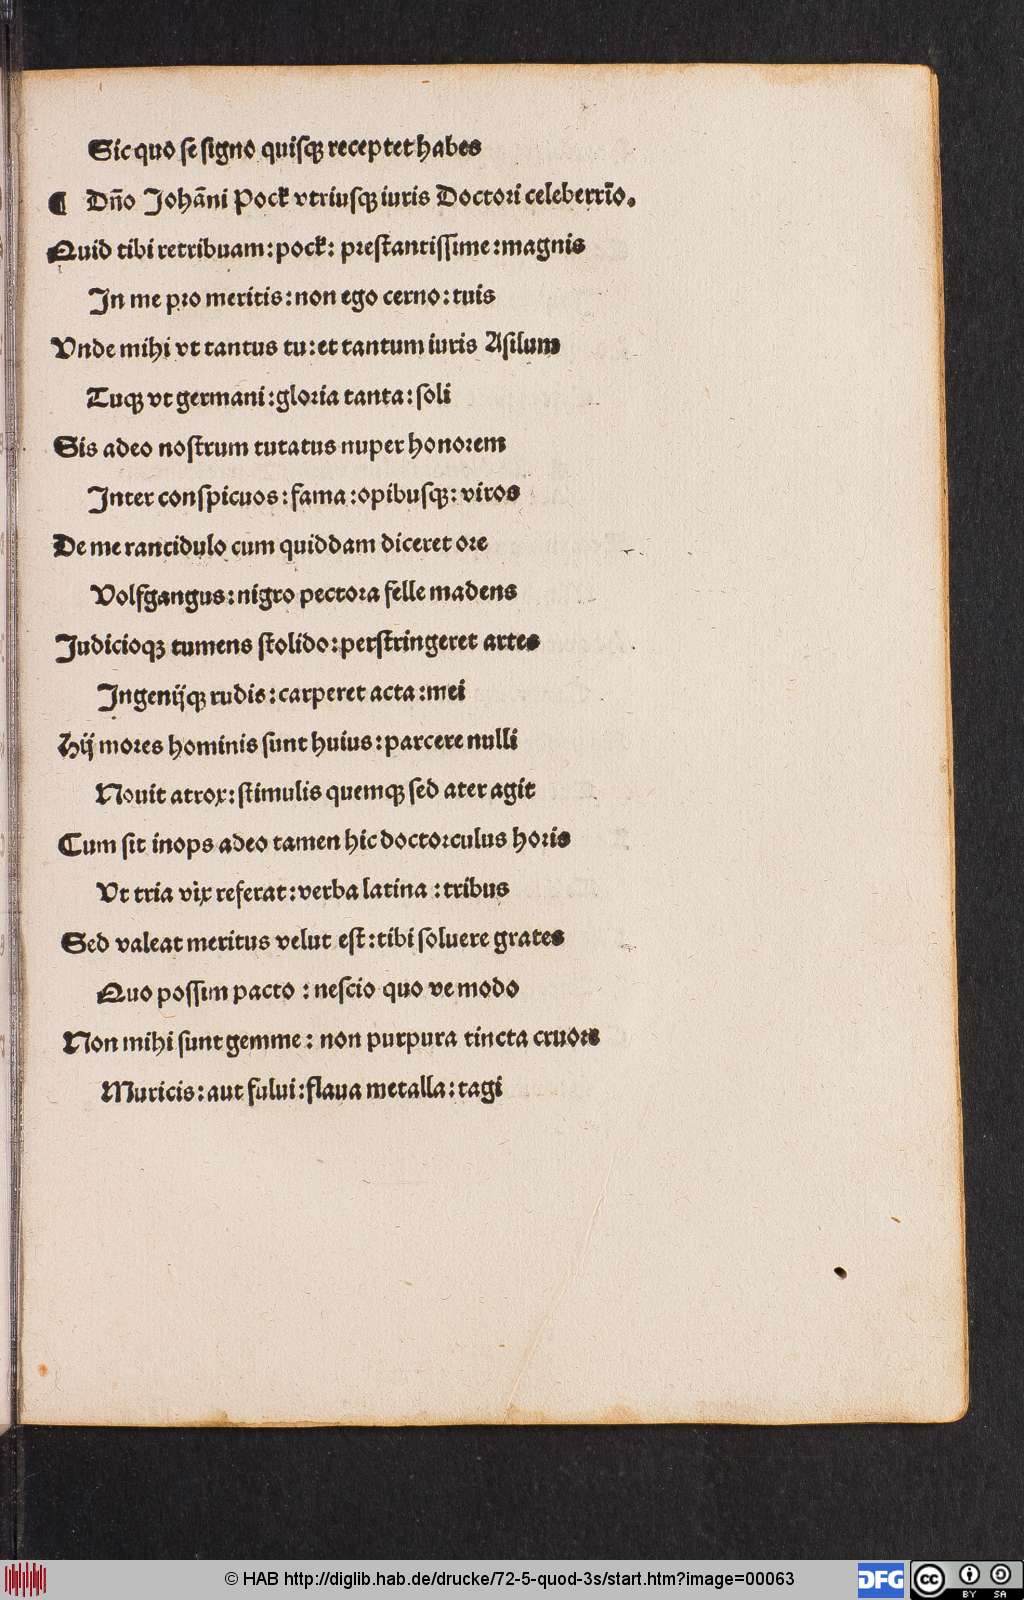 Sic quo se signo quisqꝫ receptet habes
¶ Dño Johāni Pock vtriusqꝫ iuris Doctori celeberrīo.
Quid tibi retribuam: pock: prestantissime: magnis
In me pro meritis: non ego cerno: tuis
Vnde mihi vt tantus tu: et tantum iuris Asilum
Tuqꝫ vt germani: gloria tanta: soli
Sis adeo nostrum tutatus nuper honorem
Inter conspicuos: fama: opibusqꝫ: viros
De me rancidulo cum quiddam diceret ore
Volfgangus: nigro pectora felle madens
Judicioqꝫ tumens stolido: perstringeret artes
Ingenijqꝫ rudis: carperet acta: mei
Hij mores hominis sunt huius: parcere nulli
Nouit atrox: stimulis quemqꝫ sed ater agit
Cum sit inops adeo tamen hic doctorculus horis
Vt tria vix referat: verba latina: tribus
Sed valeat meritus velut est: tibi soluere grates
Quo possim pacto: nescio quo ve modo
Non mihi sunt gemme: non purpura tincta cruore
Muricis: aut fului: flaua metalla: tagi
© HAB http://diglib.hab.de/drucke/72-5-quod-3s/start.htm?image=00063
DFG
cc BY SA